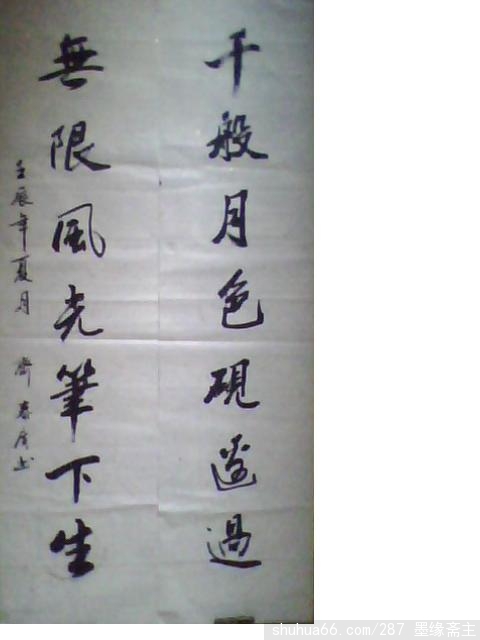 千般月色硯邊過
無限風光筆下生
壬辰年夏月 齊春
shuhua66.com/287 墨缘斋主